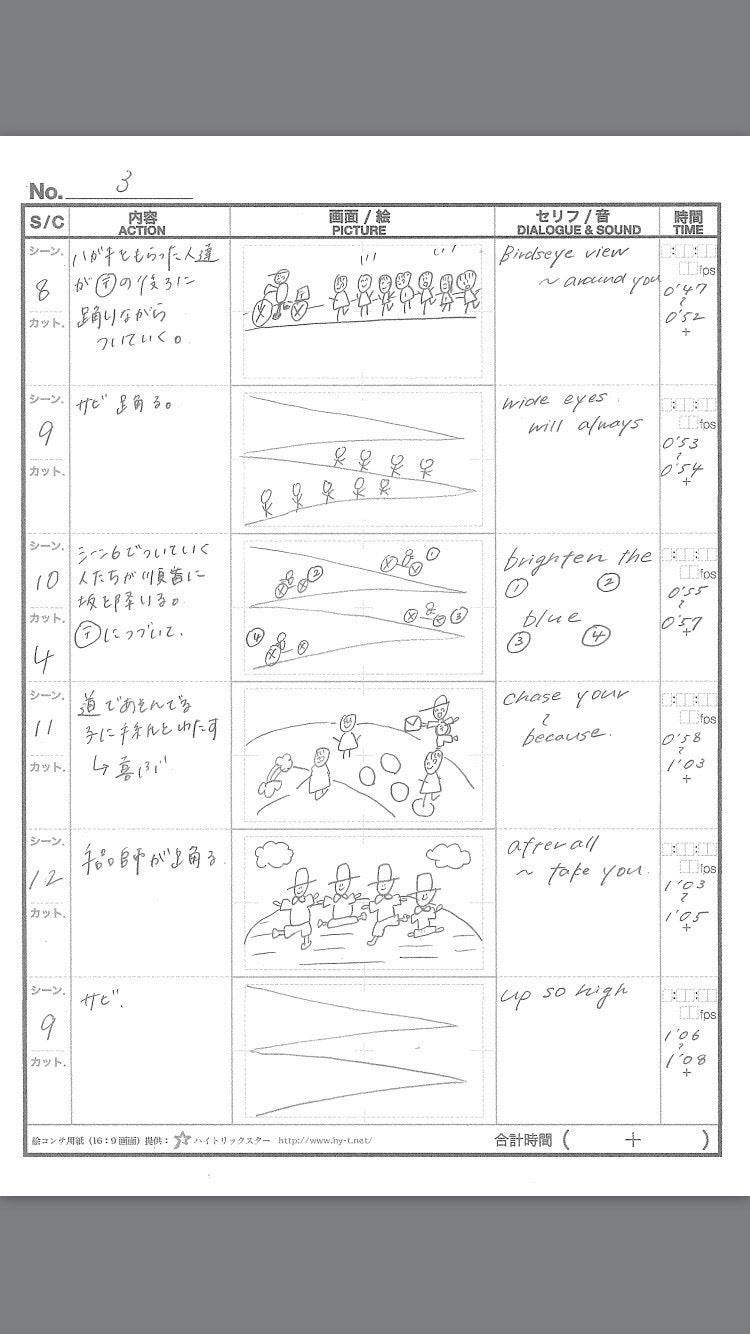 No. 3
S/C
内容
ACTION
画面 / 絵
PICTURE
セリフ / 音
DIALOGUE & SOUND
時間
TIME
シーン.
8
カット.
ハガキをもらった人達
が〒の後ろに
踊りながら
ついていく。
Birdseye view
~ around you
fps
0'47
~
0'52
+
シーン.
9
カット.
サビ 踊る。
wide eyes
will always
fps
0'53
~
0'54
+
シーン.
10
カット.
4
シーン6でついていく
人たちが順番に
坂を降りる。
〒につづいて.
① ② ③ ④
brighten the
① ②
blue
③ ④
fps
0'55
~
0'57
シーン.
11
カット.
道であそんでる
子に手紙をわたす
↳ 喜ぶ
chase your
~
because.
fps
0'58
~
1'03
+
シーン.
12
カット.
手品師が踊る.
after all
~ take you.
fps
1'03
~
1'05
+
シーン.
9
カット.
サビ.
up so high
fps
1'06
~
1'08
+
絵コンテ用紙 (16:9画面) 提供: ハイトリックスター http://www.hy-t.net/
合計時間 ( + )